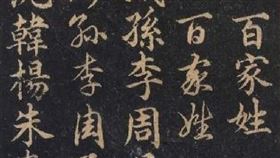 百家姓
百家姓
孫李周
孫李周
韓楊朱